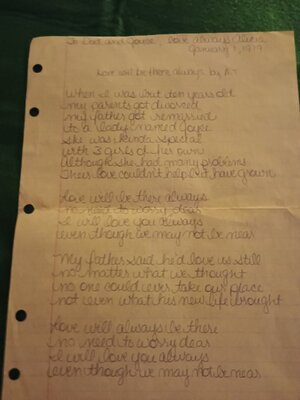 To Dad and Joyce, Love always
January 1, 1979
Love will be there always by
When I was but ten years old
my parents got divorced
my father got remarried
to a lady named Joyce
She was kinda special
with 3 girls of her own
Although she had many problems
Their love couldn't help but have grown
Love will be there always
no need to worry dear
I will love you always
even though we may not be near
My father said he'd love us still
no matter what we thought
no one could ever take our place
not even what his new life brought
Love will always be there
no need to worry dear
I will love you always
even though we may not be near